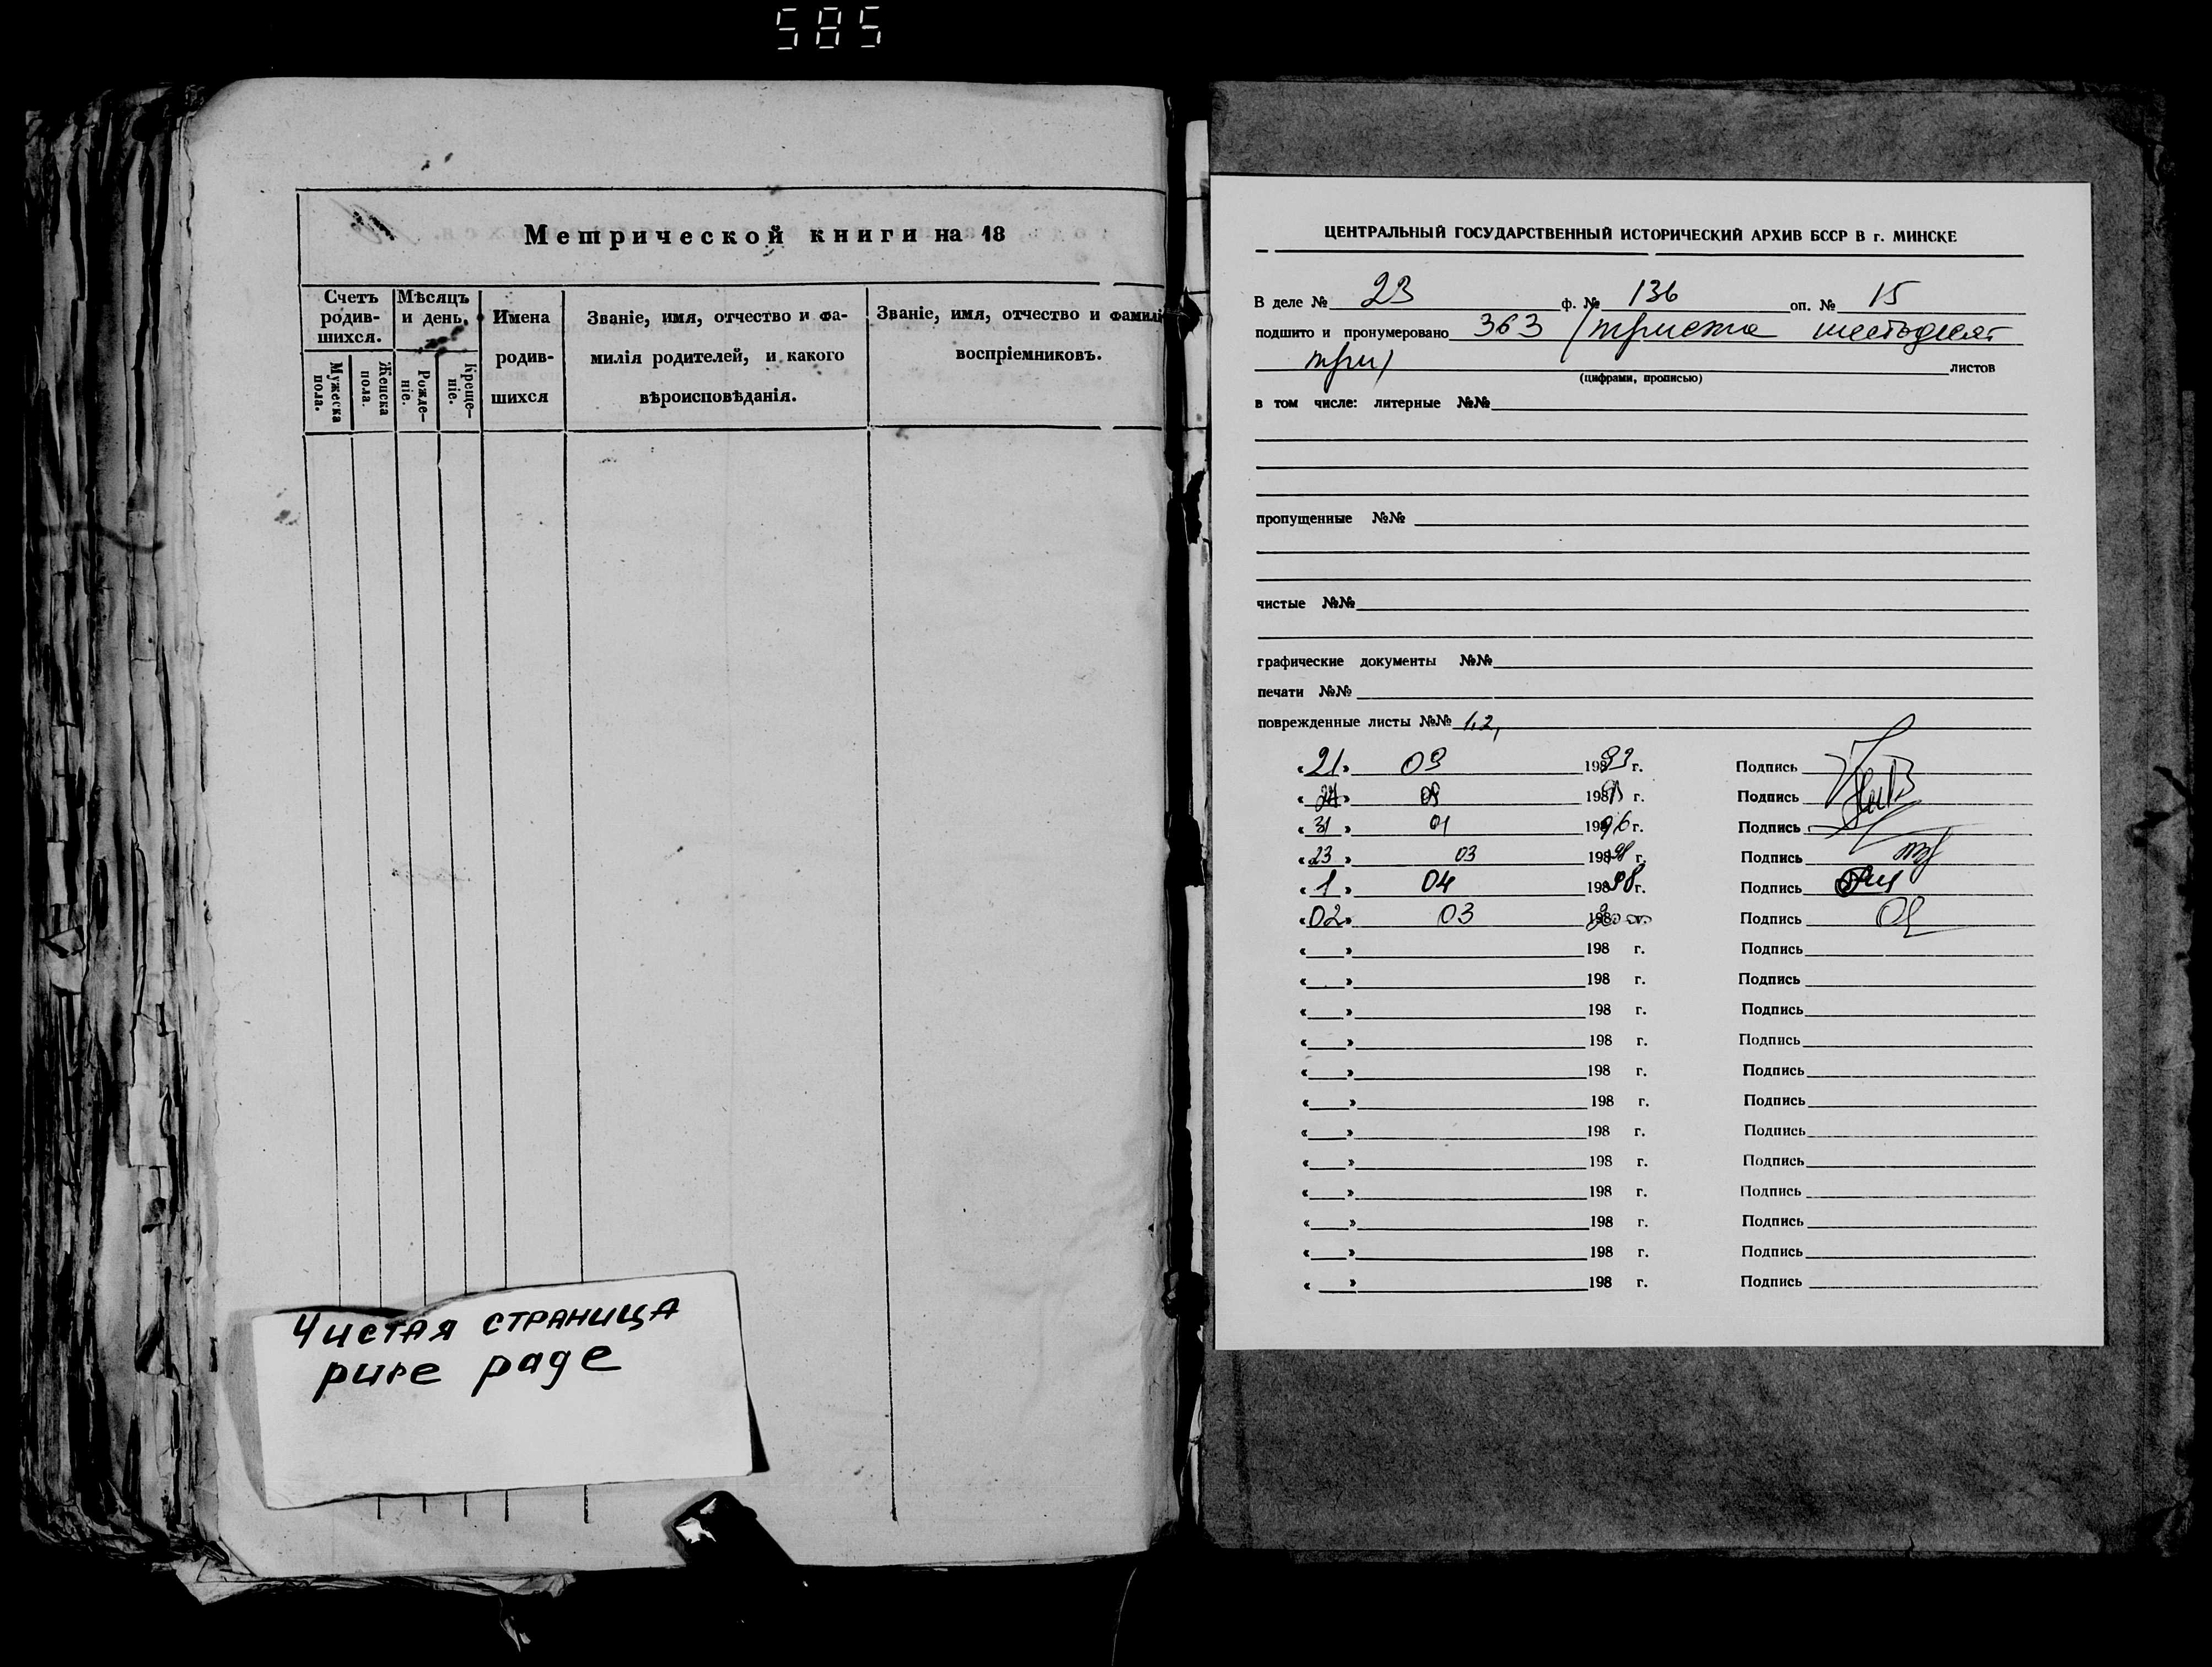 585
Метрической книги на 18
Счетъ родив-шихся.
Мѣсяцъ и день.
Имена родив-шихся
Званіе, имя, отчество и фа-
милія родителей, и какого
вѣроисповѣданія.
Званіе, имя, отчество и фамилі
воспріемниковъ.
Мужеска пола.
Женска пола.
Рожде-ніе.
Креще-ніе.
Чистая страница
pure page
ЦЕНТРАЛЬНЫЙ ГОСУДАРСТВЕННЫЙ ИСТОРИЧЕСКИЙ АРХИВ БССР В г. МИНСКЕ
В деле № 23 ф. № 136 оп. № 15
подшито и пронумеровано 363 (триста шестьдесят
три) листов
(цифрами, прописью)
в том числе: литерные №№
пропущенные №№
чистые №№
графические документы №№
печати №№
поврежденные листы №№ 1,2,
«21» 03 1983 г. Подпись
г. Подпись
«31» 01 1996 г. Подпись
«23» 03 1998 г. Подпись
«1» 04 1998 г. Подпись
«02» 03 2000 Подпись
«  » 198 г. Подпись
«  » 198 г. Подпись
«  » 198 г. Подпись
«  » 198 г. Подпись
«  » 198 г. Подпись
«  » 198 г. Подпись
«  » 198 г. Подпись
«  » 198 г. Подпись
«  » 198 г. Подпись
«  » 198 г. Подпись
«  » 198 г. Подпись
«  » 198 г. Подпись